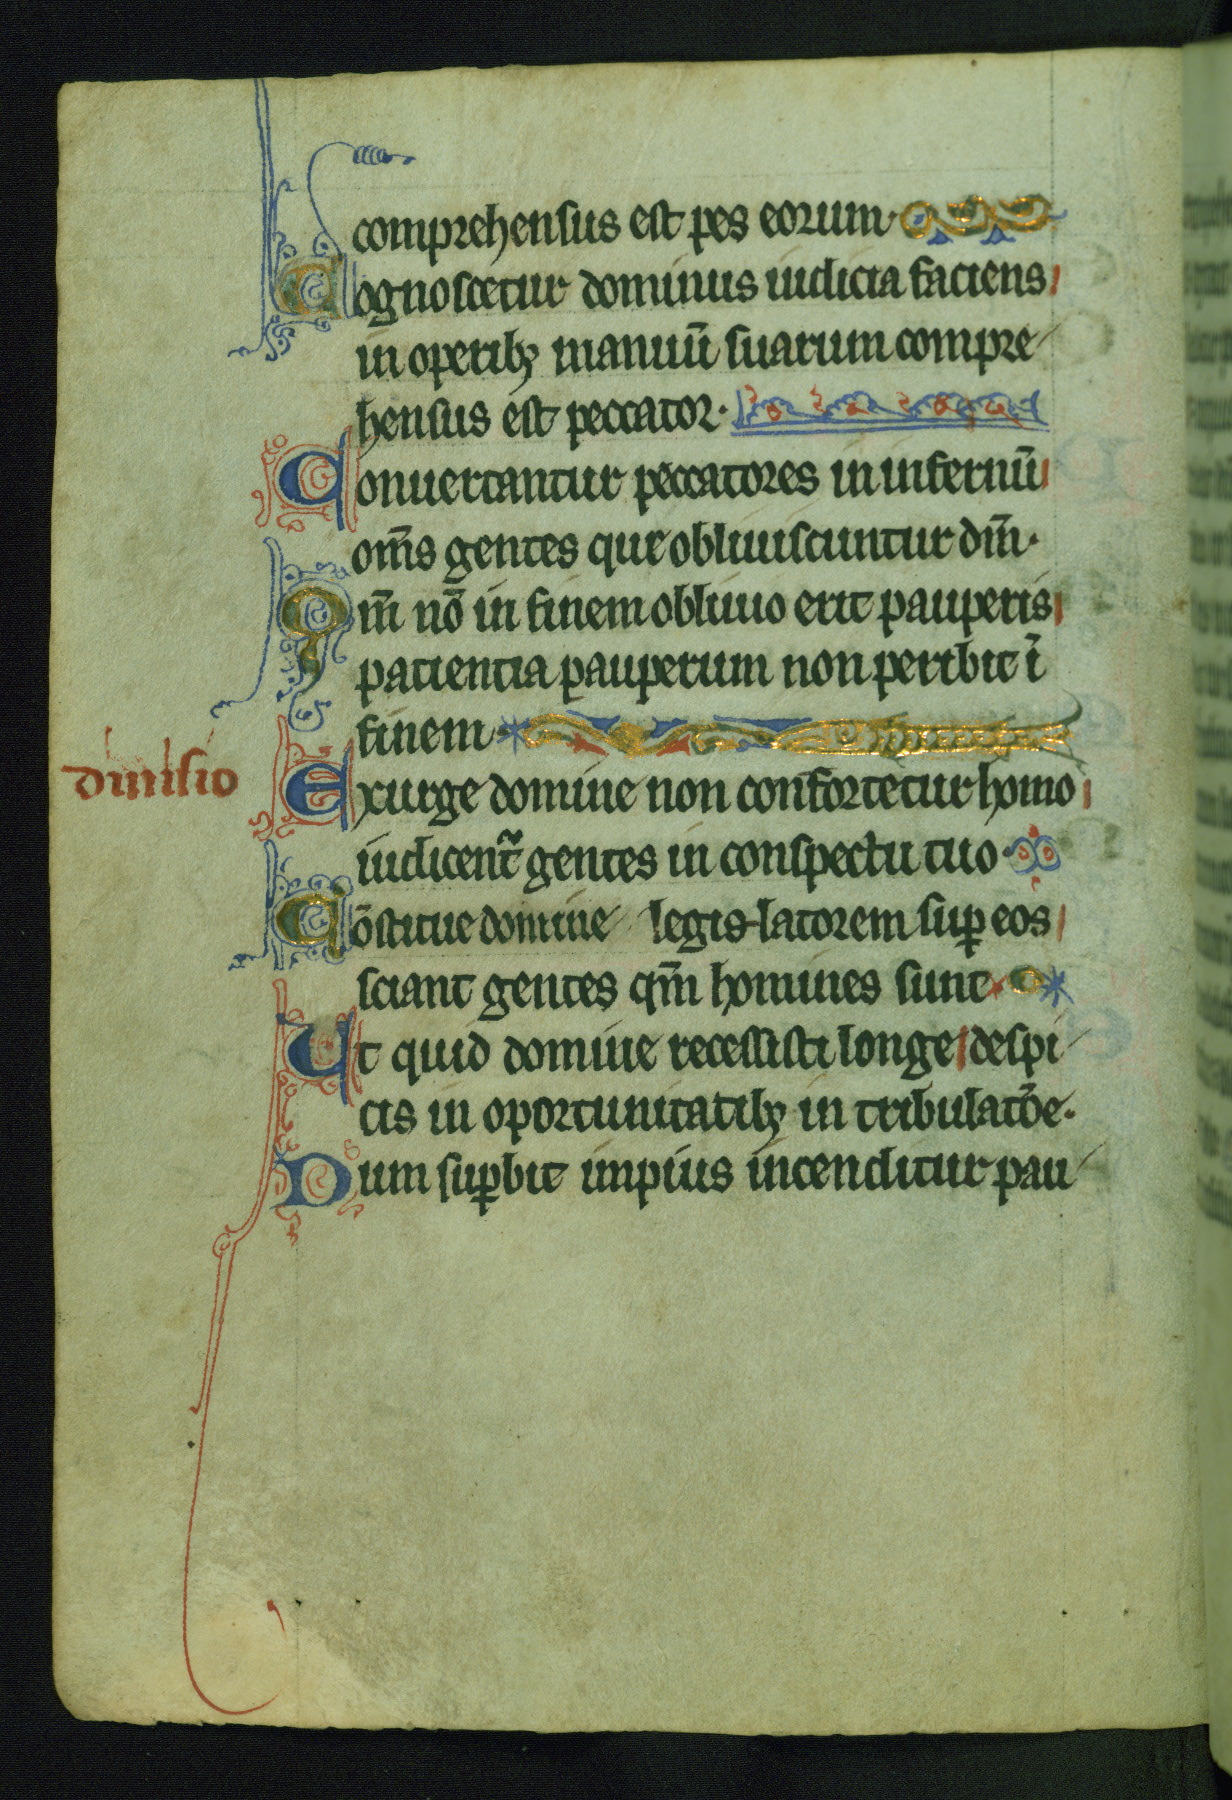 comprehensus est pes eorum·
Cognoscetur dominus iudicia faciens
in operibꝫ manuū suarum compre
hensus est peccator·
Conuertantur peccatores in infernū
om̄s gentes que obliuiscuntur dm̄·
Qm̄ nō in finem obliuio erit pauperis
patientia pauperum non peribit ī
finem·
diuisio
Exurge domine non confortetur homo
iudicent᷑ gentes in conspectu tuo·
Cōstitue domine legis-latorem suꝑ eos
sciant gentes qm̄ homines sunt
Ut quid domine recessisti longe despi
cis in oportunitatibꝫ in tribulatōe·
Dum suꝑbit impius incenditur pau